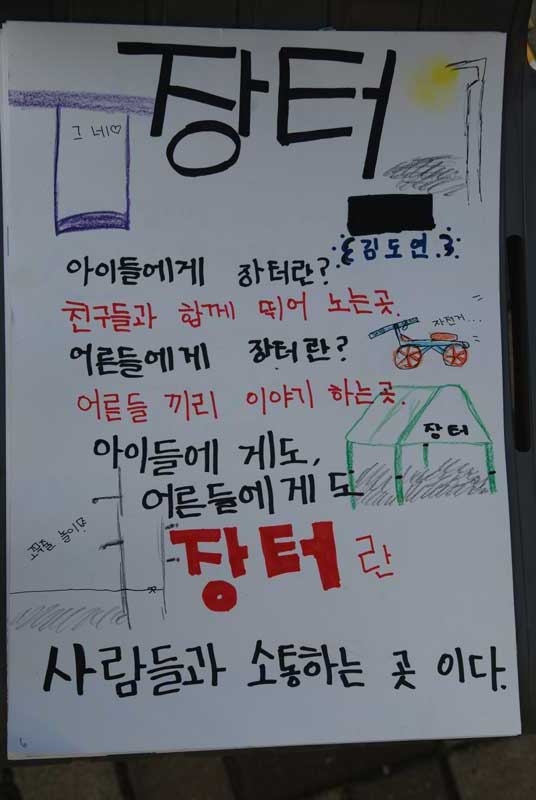 장터
그네♡
김도연
아이들에게 장터란?
친구들과 함께 뛰어 노는곳.
자전거...
어른들에게 장터란?
어른들 끼리 이야기 하는곳.
장터
아이들에 게도,
어른들에게 도
장터란
사람들과 소통하는 곳 이다.
6